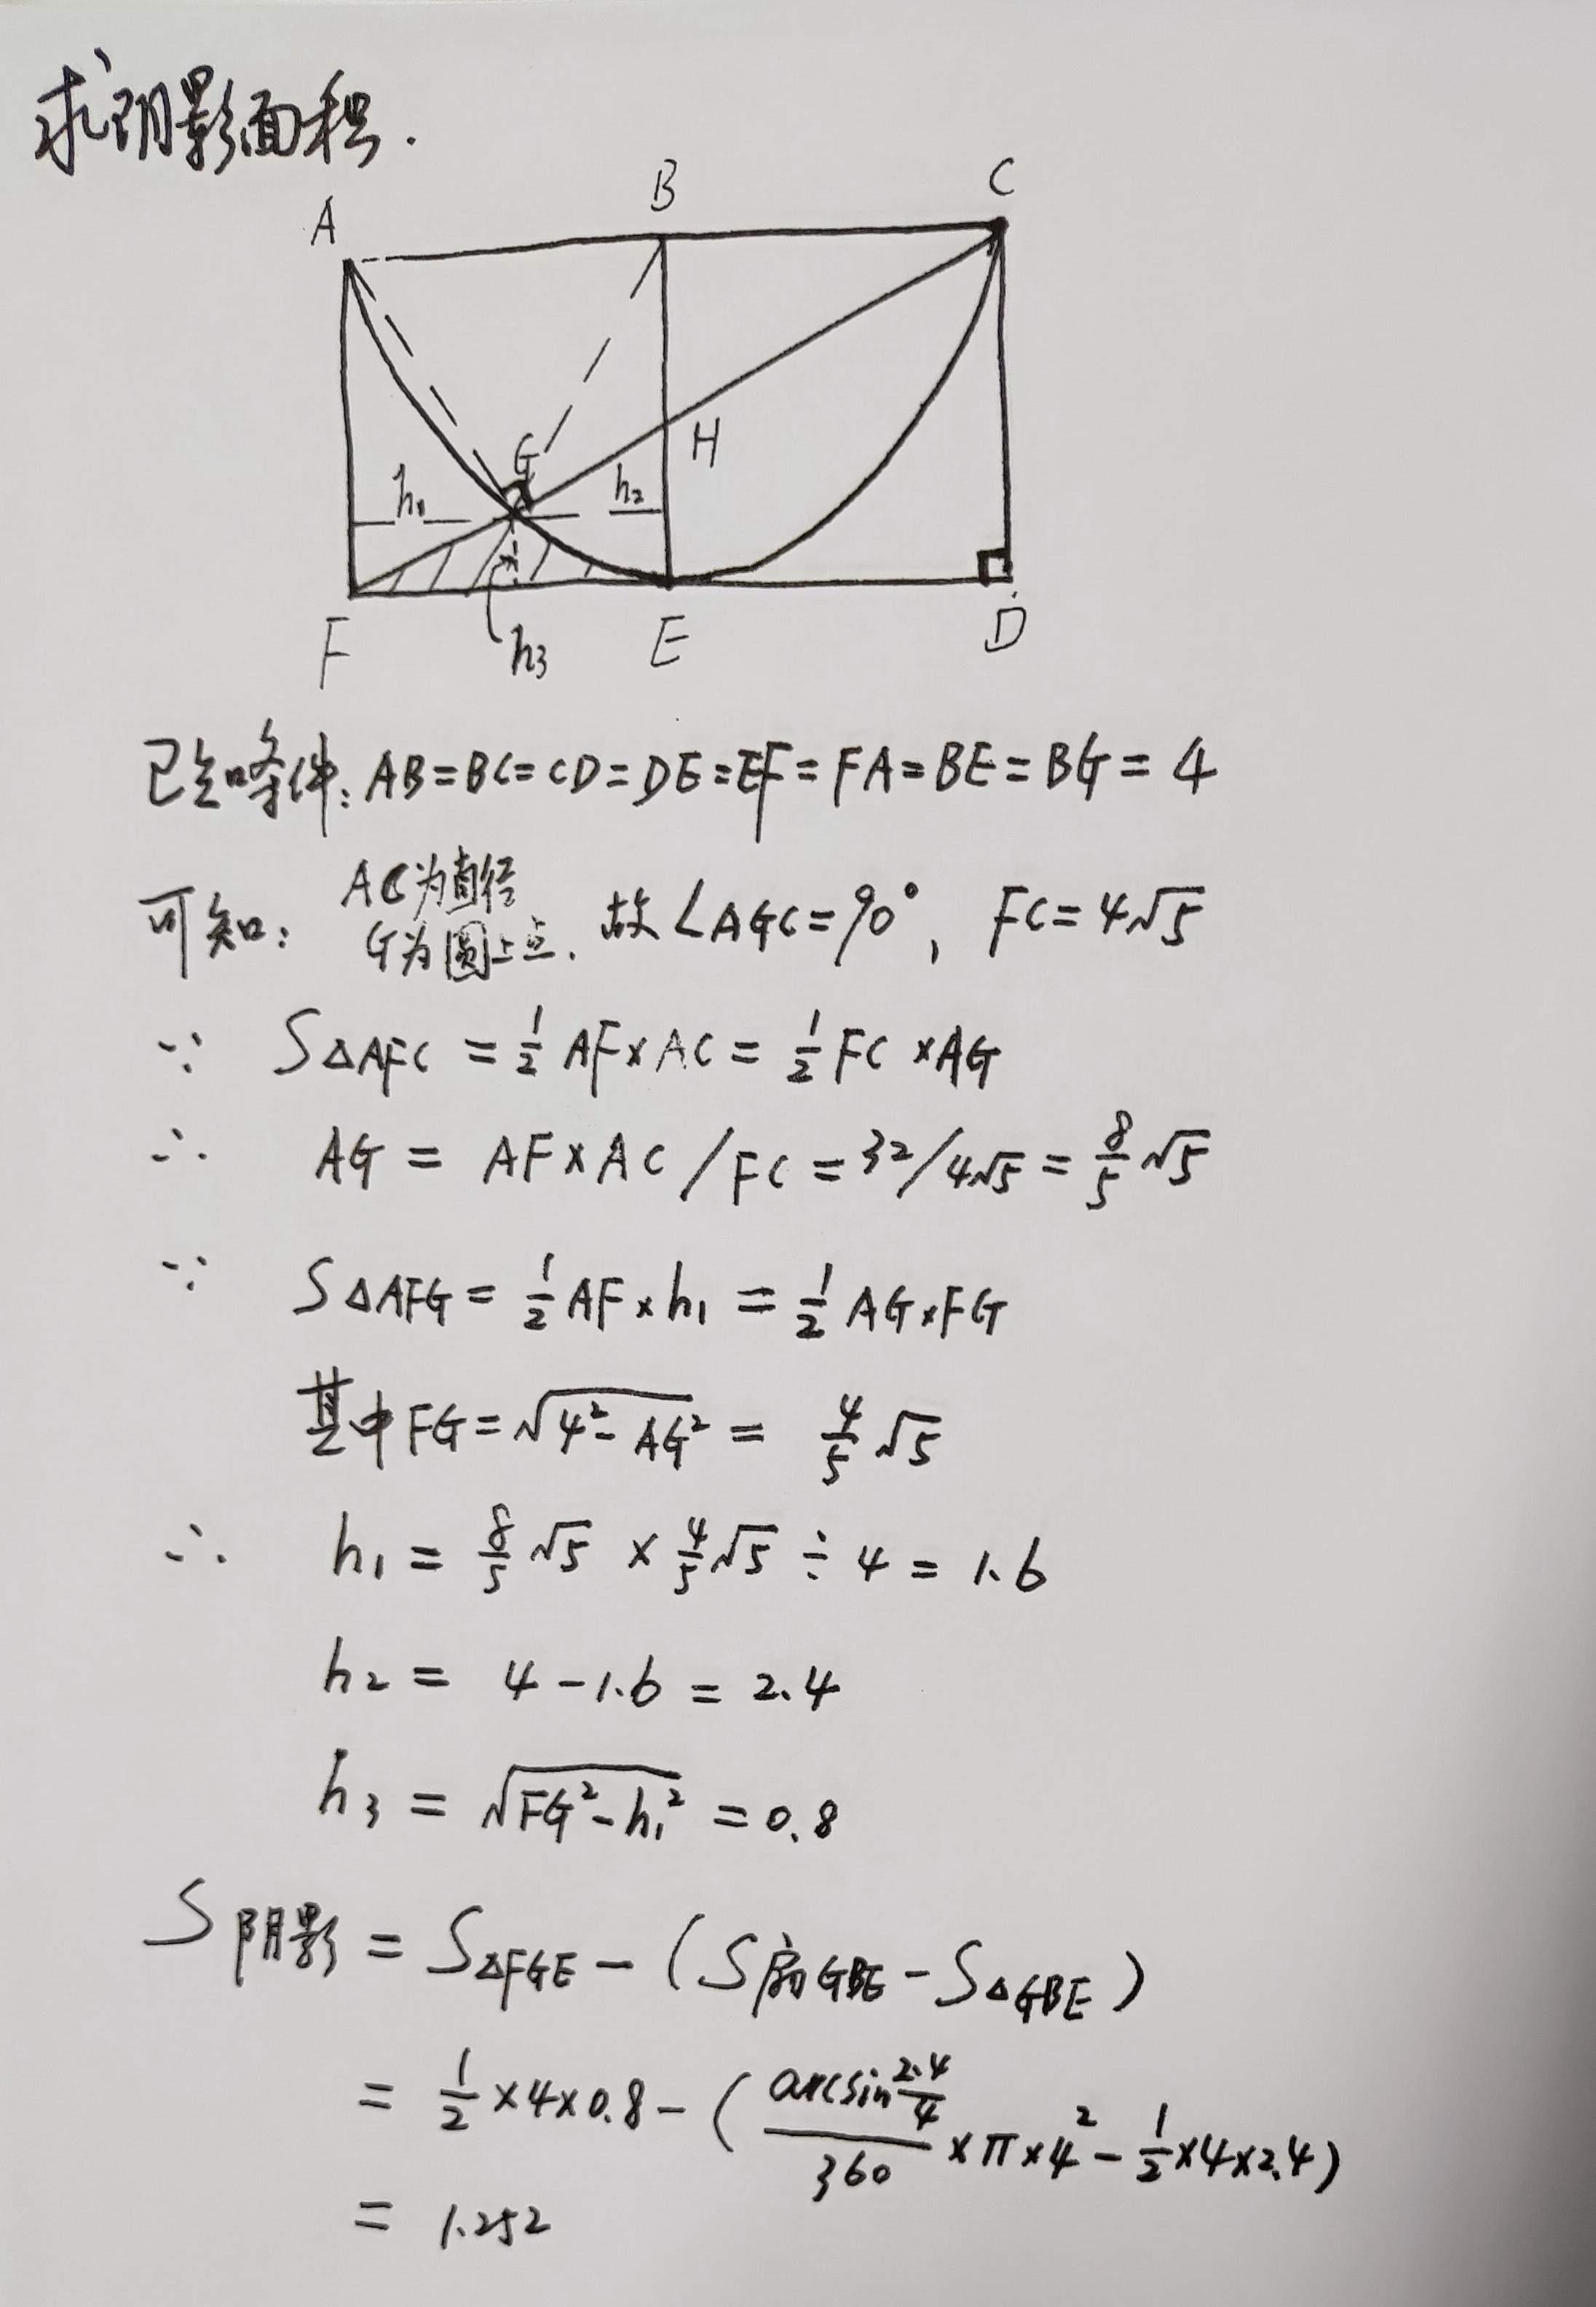 求阴影面积.
A B C
G H
h₁ h₂
F h₃ E D
已知条件: AB=BC=CD=DE=EF=FA=BE=BG=4
可知: AC为直径
G为圆上点. 故∠AGC=90°, FC=4√5
∵ S△AFC = 1/2 AF×AC = 1/2 FC×AG
∴ AG = AF×AC/FC = 32/4√5 = 8/5 √5
∵ S△AFG = 1/2 AF×h₁ = 1/2 AG×FG
其中FG=√(4²-AG²) = 4/5 √5
∴ h₁ = 8/5 √5 × 4/5 √5 ÷ 4 = 1.6
h₂ = 4-1.6 = 2.4
h₃ = √(FG²-h₁²) = 0.8
S阴影 = S△FGE - (S扇GBE - S△GBE)
= 1/2 ×4×0.8 - (arcsin 2.4/4 / 360 ×π×4² - 1/2 ×4×2.4)
= 1.252